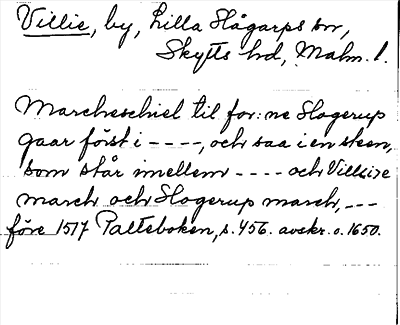 Villie, by, Lilla Slågarps sn,
Skytts hd, Malm. l.
Marcheschiel til for:ne Slogerup
gaar först i ----, och saa i en steen,
som står imellem ---- och Villiie
march och Slogerup march, ---
före 1517 Palteboken, s. 456. avskr. o. 1650.